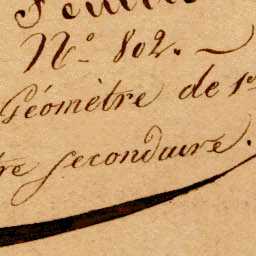 Feuille
N.o 802.
Géomètre de 1er
re secondaire.